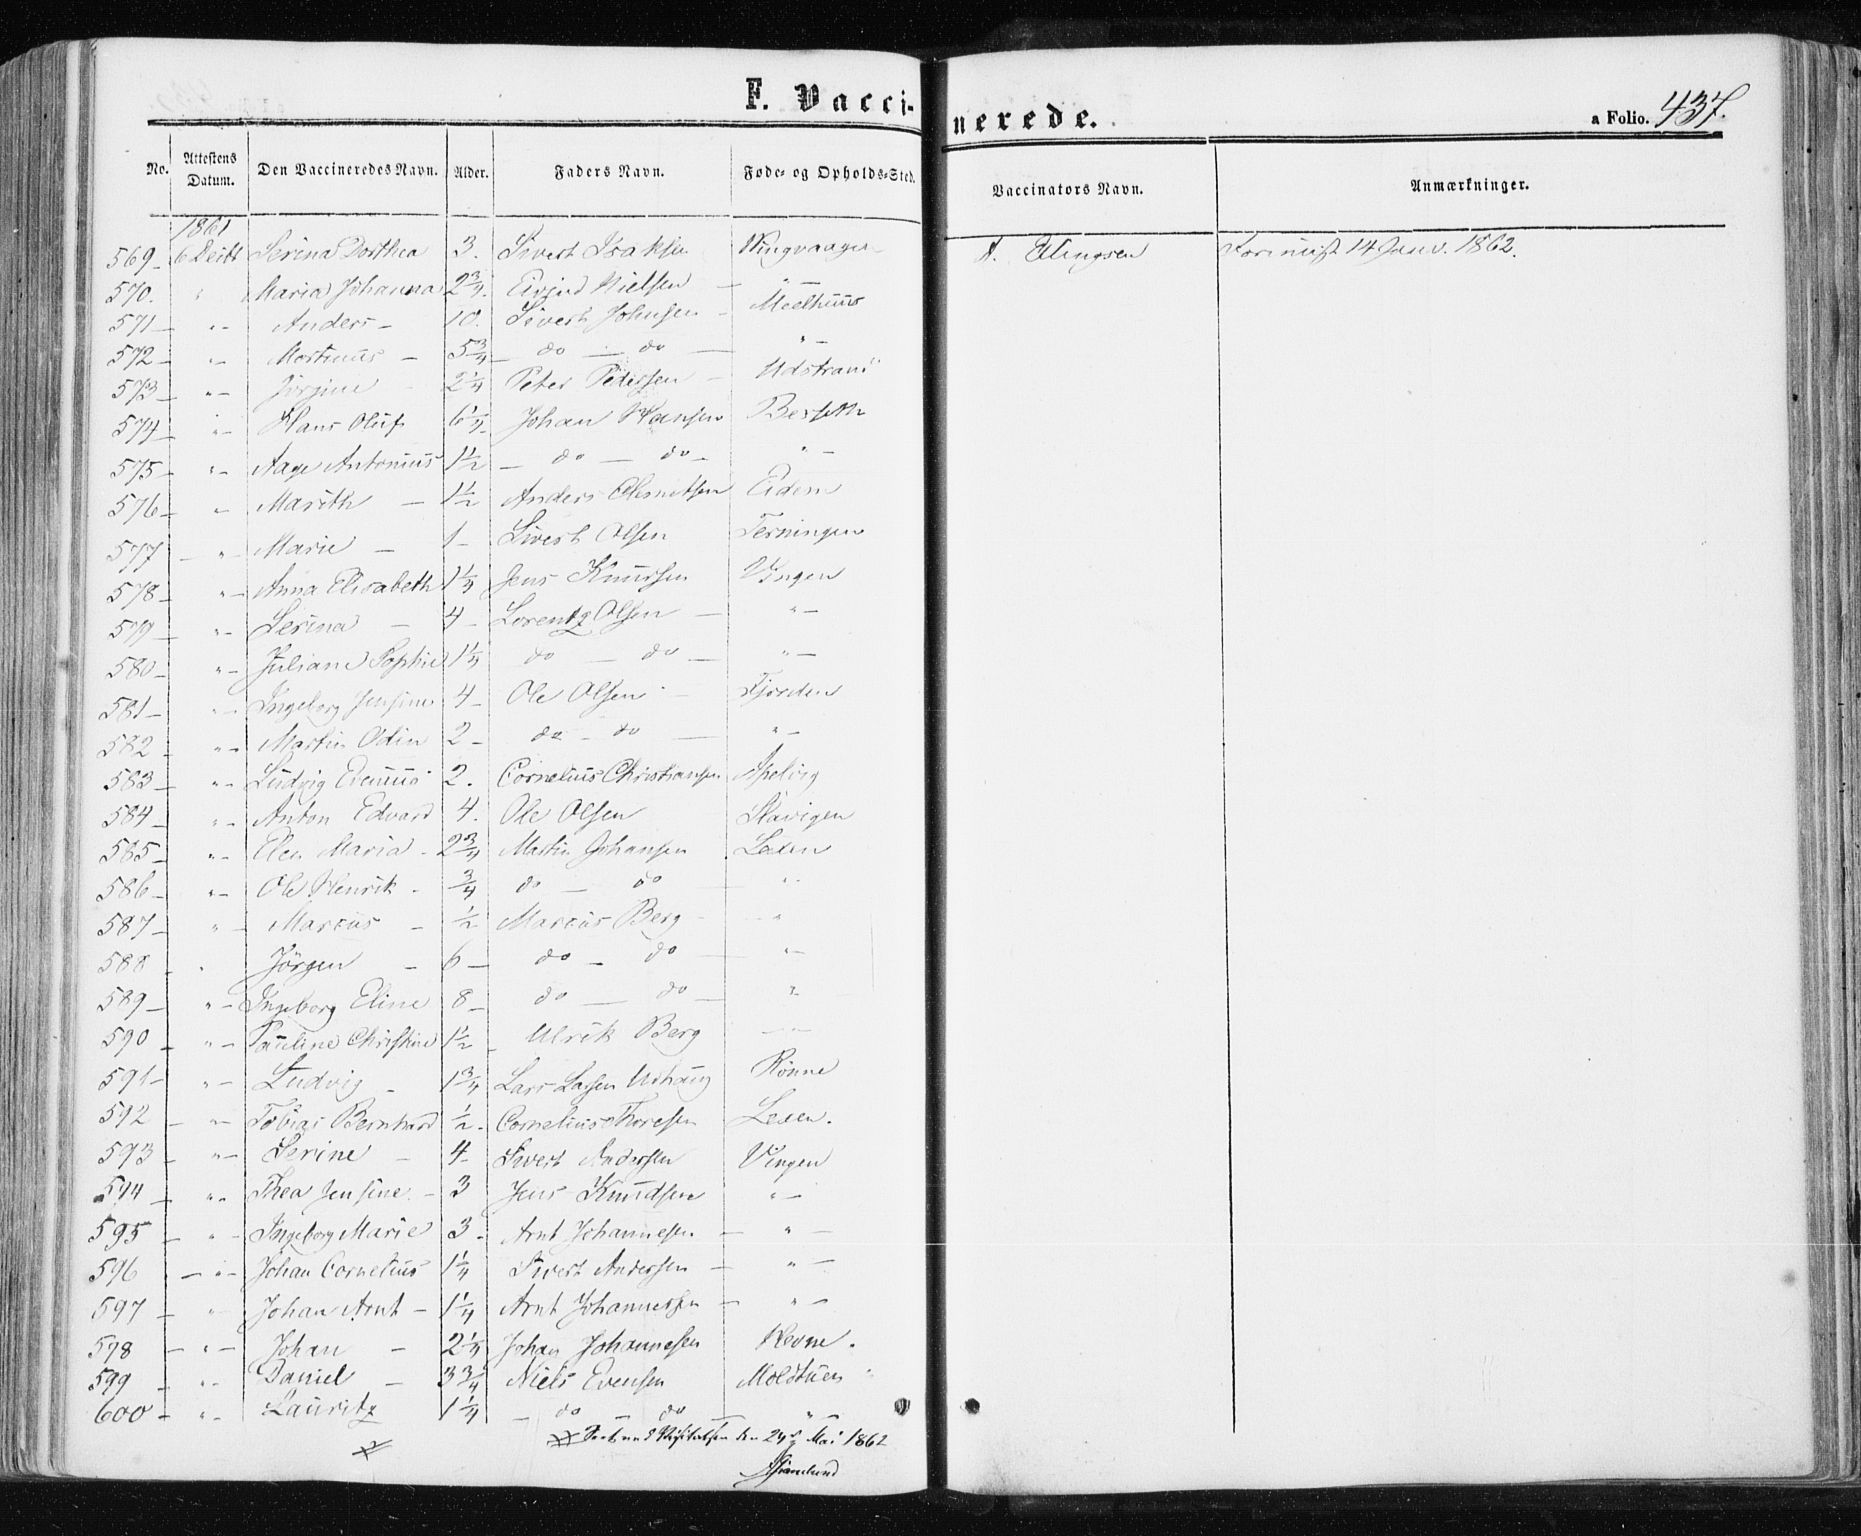 F. Vacci-
nerede.
a Folio. 437.
No. Attestens Datum. Den Vaccineredes Navn. Alder. Faders Navn. Føde- og Opholds-Sted. Vaccinators Navn. Anmærkninger.
1861
569 6 Serina Dorthea 3. Sivert Isaksen A. Ellingsen 14 Janv. 1862.
570. " Maria Johanna 2 3/4. Nielsen "
571 " Anders 10. Sivert Johnsen Meelhuus
572 " 5 3/4 do do "
573 " Jörgine 2 1/4 Peter Petersen
574 " Hans Oluf 6 1/4 Johan Hansen Berseth
575 " Aage Antonius 1 1/2 do do "
576 " Marith 1 1/2 Anders Eidem
577 " Marie 1 Sivert Olsen Terningen
578 " Anna Elisabeth 1 1/4 Jens Knutsen Vingen
579 " Serina 4 Lorentz Olsen "
580 " Juliane Sophie 1 1/4 do do "
581 " Ingeborg Jensine 4 Ole Olsen Fjorden
582 " Martin Odin 2 do do "
583 " Ludvig 2. Cornelius Christiansen Apelvig
584 " Anton Edvard 4. Ole Olsen Slavigen
585 " Elen Maria 2 3/4 Martin Johansen Lexen
586 " Ole Henrik 3/4 do do "
587 " Marcus 1/2 Marcus Berg "
588 " Jörgen 6 do do "
589 " Ingeborg Eline 8 do do "
590 " Pauline Christine 1 1/2 Ulrik Berg "
591 " Ludvig 1 3/4 Lars Larsen Rönne
592 " Tobias Bernhard 1/2. Cornelius Thoresen Lexen.
593 " Serine 4 Sivert Anderssen Vingen
594 " Thea Jensine 3 Jens Knudsen "
595 " Ingeborg Marie 3. Arnt Johannesen "
596 " Johan Cornelius 1 1/4 Sivert Andersen "
597 " Johan Arnt 1 1/4 Arnt Johannessen "
598 " Johan 2 1/4 Johan Johannesen Hevne.
599 " Daniel 3 3/4 Niels Evensen
600 " Lauritz 1 1/4 do do "
Visitatsen den 24de Mai 1862